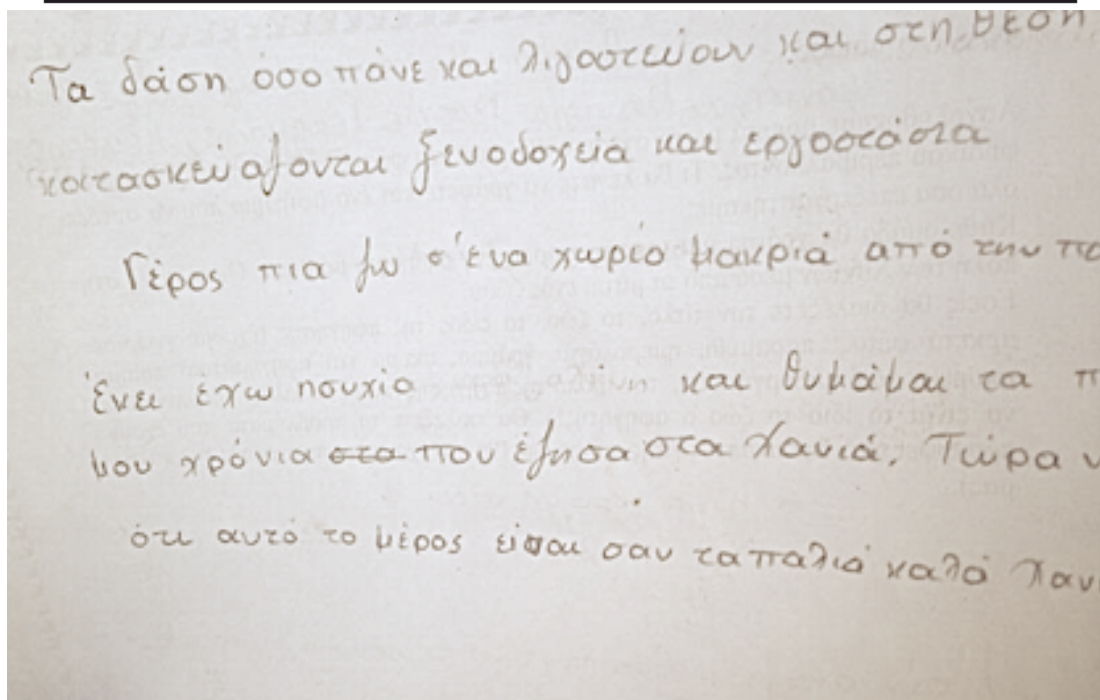 Τα δάση όσο πάνε και λιγοστεύουν και στη θέση
κατασκευάζονται ξενοδοχεία και εργοστάσια
Γέρος πια ζω σ' ένα χωριό μακριά από την πό
έχω ησυχία και θυμάμαι τα π
μου χρόνια στα που έζησα στα Χανιά. Τώρα ν
ότι αυτό το μέρος είναι σαν τα παλιά καλά Χαν